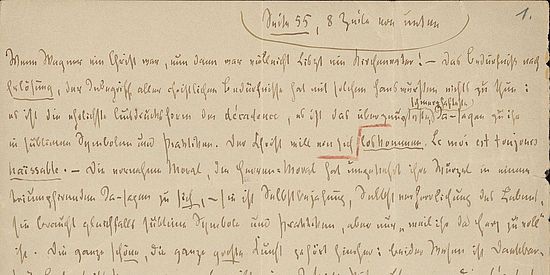 Seite 55, 8 Zeile von unten
1.
Wenn Wagner ein Christ war, nun dann war vielleicht Liszt ein Kirchenvater! – Das Bedürfniß nach
Erlösung, der Inbegriff aller christlichen Bedürfnisse hat mit solchen Hanswürsten nichts zu thun:
es ist die ehrlichste Ausdrucksform der décadence, es ist das überzeugteste, schmerzhafteste Ja-sagen zu ihr
in sublimen Symbolen und Praktiken. Der Christ will von sich loskommen. Le moi est toujours
haïssable. – Die vornehme Moral, die Herren-Moral hat umgekehrt ihre Wurzel in einem
triumphirenden Ja-sagen zu sich, – sie ist Selbstbejahung, Selbstverherrlichung des Lebens,
sie braucht gleichfalls sublime Symbole und Praktiken, aber nur „weil ihr das Herz zu voll“
ist. Die ganze schöne, die ganze große Kunst gehört hierher: beider Wesen ist Dankbar-